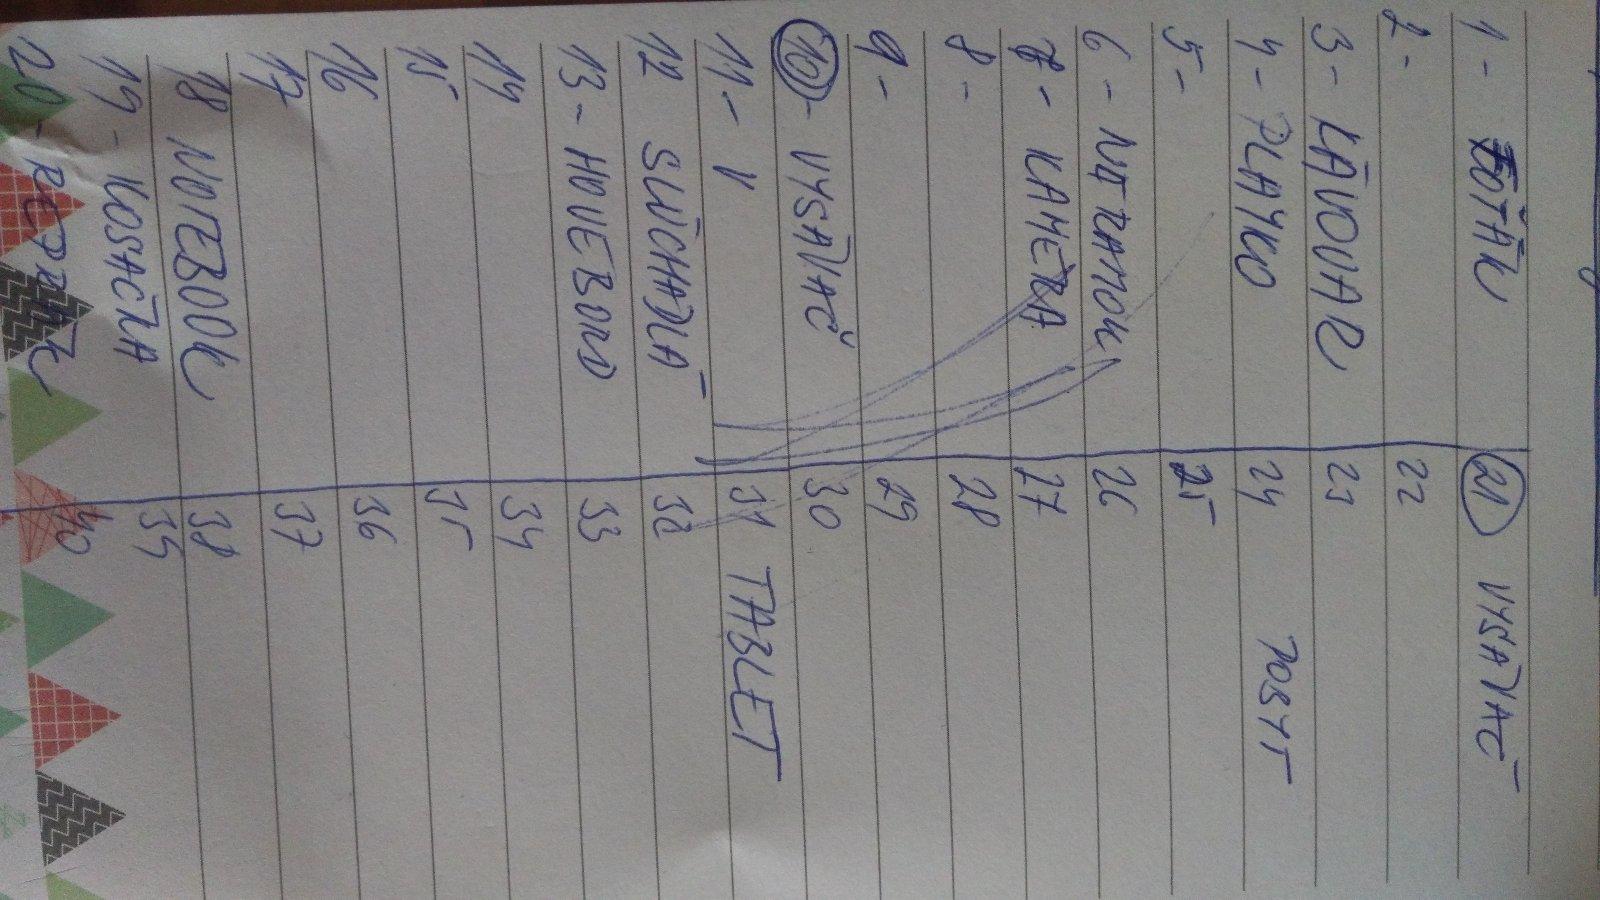 1 - FOŤÁK
2 -
3 - KÁVOVAR
4 - PLAYKO
5 -
6 -
7 - KAMERA
8 -
9 -
10 - VYSÁVAČ
11 - V
12 SLÚCHADLA
13 - HOVEBORD
14
15
16
17
18 NOTEBOOK
19 - KOSAČKA
20 - REPRÁK
21 VYSÁVAČ
22
23
24 POBYT
25
26
27
28
29
30
31 TABLET
32
33
34
35
36
37
38
39
40